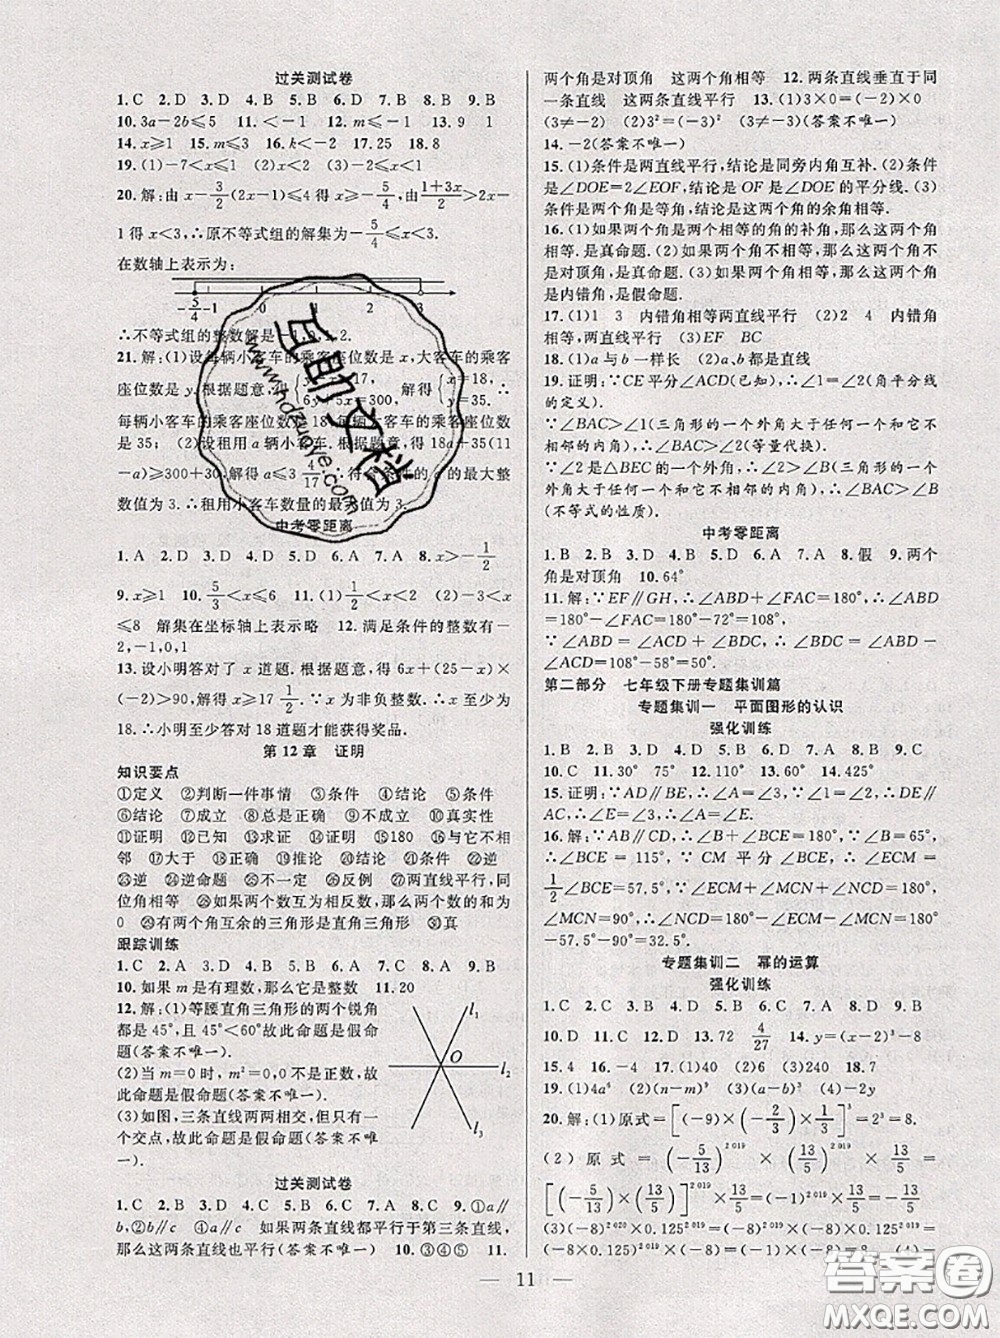 过关测试卷
1.C 2.D 3.D 4.B 5.B 6.D 7.B 8.B 9.B
10.3a-2b≤5 11.<-1 12.m≤-1 13.9 1
14.x≥1 15.m≤3 16.k<-2 17.25 18.8
19.(1)-7<x≤1 (2)x<2 (3)-1≤x<3
20.解:由 x-3/2(2x-1)≤4 得 x≥-5/4,由(1+3x)/2>2x-
1得 x<3,∴原不等式组的解集为-5/4≤x<3.
在数轴上表示为:
-5/4 -1 0 1 2 3
∴不等式组的整数解是-1,0,1,2.
21.解:(1)设每辆小客车的乘客座位数是 x,大客车的乘客
座位数是 y,根据题意,得 解得{x=18, y=35, ∴
每辆小客车的乘客座位数是18,每辆大客车的乘客座位数
是 35; (2)设租用 a 辆小客车,根据题意,得 18a+35(11
-a)≥300+30,解得a≤3 4/17,∴符合条件的a的最大整
数值为 3.∴租用小客车数量的最大值为 3.
中考零距离
1.A 2.B 3.B 4.D 5.D 6.A 7.A 8.x>-1/2
9.x≥1 10.5/3<x≤6 11.(1)1/2<x<4 (2)-2<x
≤8 解集在坐标轴上表示略 12.满足条件的整数有-
2,-1,0,1
13.设小明答对了 x 道题.根据题意,得 6x+(25-x)×
(-2)>90,解得 x>17 1/2.∵x为非负整数,∴x至少为
18.∴小明至少答对 18 道题才能获得奖品.
第 12 章 证明
知识要点
①定义 ②判断一件事情 ③条件 ④结论 ⑤条件
⑥结论 ⑦成立 ⑧总是正确 ⑨不成立 ⑩真实性
⑪证明 ⑫已知 ⑬求证 ⑭证明 ⑮180 ⑯与它不相
邻 ⑰大于 ⑱正确 ⑲推论 ⑳结论 ㉑条件 ㉒逆
㉓逆 ㉔逆命题 ㉕不一定 ㉖反例 ㉗两直线平行,同
位角相等 ㉘如果两个数互为相反数,那么两个数的和为
0 ㉙有两个角互余的三角形是直角三角形 ㉚真
跟踪训练
1.C 2.A 3.D 4.A 5.A 6.A 7.C 8.B 9.C
10.如果 m 是有理数,那么它是整数 11.20
12.解:(1)等腰直角三角形的两个锐角
都是 45°,且 45°<60°故此命题是假命
题(答案不唯一).
(2)当 m=0 时, m²=0,不是正数,故
此命题是假命题(答案不唯一).
(3)如图,三条直线两两相交,但只有一
个交点,故此命题是假命题(答案不唯
一).
l1
O
l2
l3
过关测试卷
1.C 2.B 3.D 4.A 5.C 6.A 7.C 8.C 9.①a∥
b,②b∥c ④a∥c 如果两条直线都平行于第三条直线,
那么这两条直线也平行(答案不唯一) 10.③④⑤ 11.
两个角是对顶角 这两个角相等 12.两条直线垂直于同
一条直线 这两条直线平行 13.(1)3×0=(-2)×0
(3≠-2) (2)3²=(-3)²(3≠-3)(答案不唯一)
14.-2(答案不唯一)
15.(1)条件是两直线平行,结论是同旁内角互补.(2)条件
是∠DOE=2∠EOF,结论是 OF 是∠DOE的平分线.(3)
条件是两个角是等角,结论是这两个角的余角相等.
16.(1)如果两个角是两个相等的角的补角,那么这两个角
相等.是真命题.(2)如果两个角不相等,那么这两个角不
是对顶角.是真命题.(3)如果两个角相等,那么这两个角
是内错角,是假命题.
17.(1)1 3 内错角相等两直线平行 (2)2 4 内错角
相等,两直线平行 (3)EF BC
18.(1)a 与 b 一样长 (2)a,b都是直线
19.证明:∵CE平分∠ACD(已知),∴∠1=∠2(角平分线
的定义).
∵∠BAC>∠1(三角形的一个外角大于任何一个和它不
相邻的内角),∴∠BAC>∠2(等量代换).
∵∠2 是△BEC 的一个外角,∴∠2>∠B(三角形的一个
外角大于任何一个和它不相邻的内角).∴∠BAC>∠B
(不等式的性质).
中考零距离
1.B 2.B 3.B 4.C 5.C 6.D 7.A 8.假 9.两个
角是对顶角 10.64°
11.解:∵EF∥GH,∴∠ABD+∠FAC=180°,∴∠ABD
=180°-∠FAC=180°-72°=108°,
∵∠ABD=∠ACD+∠BAC,∴∠BAC=∠ABD-
∠ACD=108°-58°=50°.
第二部分 七年级下册专题集训篇
专题集训一 平面图形的认识
强化训练
1.B 2.B 3.D 4.D 5.B 6.D 7.A 8.B 9.C
10.C 11.30° 75° 12.110° 13.60° 14.425°
15.证明:∵AD∥BE,∴∠A=∠3,∵∠1=∠2,∴DE∥
AC,∴∠E=∠3,∴∠A=∠E.
16.解:∵AB∥CD,∴∠B+∠BCE=180°,∵∠B=65°,
∴∠BCE=115°,∵CM 平分∠BCE,∴∠ECM=
1/2∠BCE=57.5°,∵∠ECM+∠MCN+∠NCD=180°,
∠MCN=90°,∴∠NCD=180°-∠MCN-∠ECM=180°
-57.5°-90°=32.5°.
专题集训二 幂的运算
强化训练
1.C 2.C 3.A 4.B 5.D 6.A 7.D 8.D 9.B
10.D 11.A 12.A 13.72 4/27 14.y=(x-2)³-8
15.4 16.-4 17.(1)40 (2)6 18.7
19.(1)4a⁶ (2)(n-m)³ (3)-1/2 (4)-2y
20.解:(1)原式=[(-9)×(-2/3)×(1/3)]³=2³=8.
(2)原式=(-5/13)²⁰¹⁹×(13/5)²⁰¹⁹×(13/5)=
[(-5/13)×13/5]²⁰¹⁹×13/5=(-1)²⁰¹⁹×13/5=-13/5.
(3)原式=(-8)²⁰²⁰×0.125²⁰¹⁹=(-8)×(-8)²⁰¹⁹×0.125²⁰¹⁹=
(-8)×(-8×0.125)²⁰¹⁹=(-8)×(-1)=8. (4)
— 11 —
百助文档
www.hdzuoye.com
答案圈
MXQE.COM